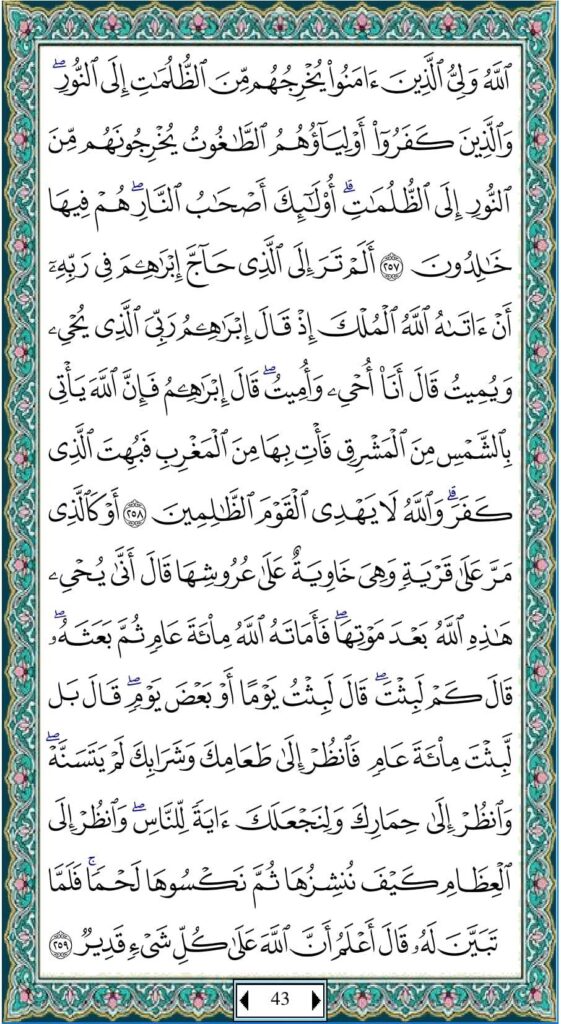 ٱللَّهُ وَلِيُّ ٱلَّذِينَ ءَامَنُوا۟ يُخْرِجُهُم مِّنَ ٱلظُّلُمَٰتِ إِلَى ٱلنُّورِ ۖ
وَٱلَّذِينَ كَفَرُوٓا۟ أَوْلِيَآؤُهُمُ ٱلطَّٰغُوتُ يُخْرِجُونَهُم مِّنَ
ٱلنُّورِ إِلَى ٱلظُّلُمَٰتِ ۗ أُو۟لَٰٓئِكَ أَصْحَٰبُ ٱلنَّارِ ۖ هُمْ فِيهَا
خَٰلِدُونَ ٢٥٧ أَلَمْ تَرَ إِلَى ٱلَّذِى حَآجَّ إِبْرَٰهِـۧمَ فِى رَبِّهِۦٓ
أَنْ ءَاتَىٰهُ ٱللَّهُ ٱلْمُلْكَ إِذْ قَالَ إِبْرَٰهِـۧمُ رَبِّىَ ٱلَّذِى يُحْىِۦ
وَيُمِيتُ قَالَ أَنَا۠ أُحْىِۦ وَأُمِيتُ ۖ قَالَ إِبْرَٰهِـۧمُ فَإِنَّ ٱللَّهَ يَأْتِى
بِٱلشَّمْسِ مِنَ ٱلْمَشْرِقِ فَأْتِ بِهَا مِنَ ٱلْمَغْرِبِ فَبُهِتَ ٱلَّذِى
كَفَرَ ۗ وَٱللَّهُ لَا يَهْدِى ٱلْقَوْمَ ٱلظَّٰلِمِينَ ٢٥٨ أَوْ كَٱلَّذِى
مَرَّ عَلَىٰ قَرْيَةٍ وَهِىَ خَاوِيَةٌ عَلَىٰ عُرُوشِهَا قَالَ أَنَّىٰ يُحْىِۦ
هَٰذِهِ ٱللَّهُ بَعْدَ مَوْتِهَا ۖ فَأَمَاتَهُ ٱللَّهُ مِا۟ئَةَ عَامٍ ثُمَّ بَعَثَهُۥ ۖ
قَالَ كَمْ لَبِثْتَ ۖ قَالَ لَبِثْتُ يَوْمًا أَوْ بَعْضَ يَوْمٍ ۖ قَالَ بَل
لَّبِثْتَ مِا۟ئَةَ عَامٍ فَٱنظُرْ إِلَىٰ طَعَامِكَ وَشَرَابِكَ لَمْ يَتَسَنَّهْ ۖ
وَٱنظُرْ إِلَىٰ حِمَارِكَ وَلِنَجْعَلَكَ ءَايَةً لِّلنَّاسِ ۖ وَٱنظُرْ إِلَى
ٱلْعِظَامِ كَيْفَ نُنشِزُهَا ثُمَّ نَكْسُوهَا لَحْمًا ۚ فَلَمَّا
تَبَيَّنَ لَهُۥ قَالَ أَعْلَمُ أَنَّ ٱللَّهَ عَلَىٰ كُلِّ شَىْءٍ قَدِيرٌ ٢٥٩
43